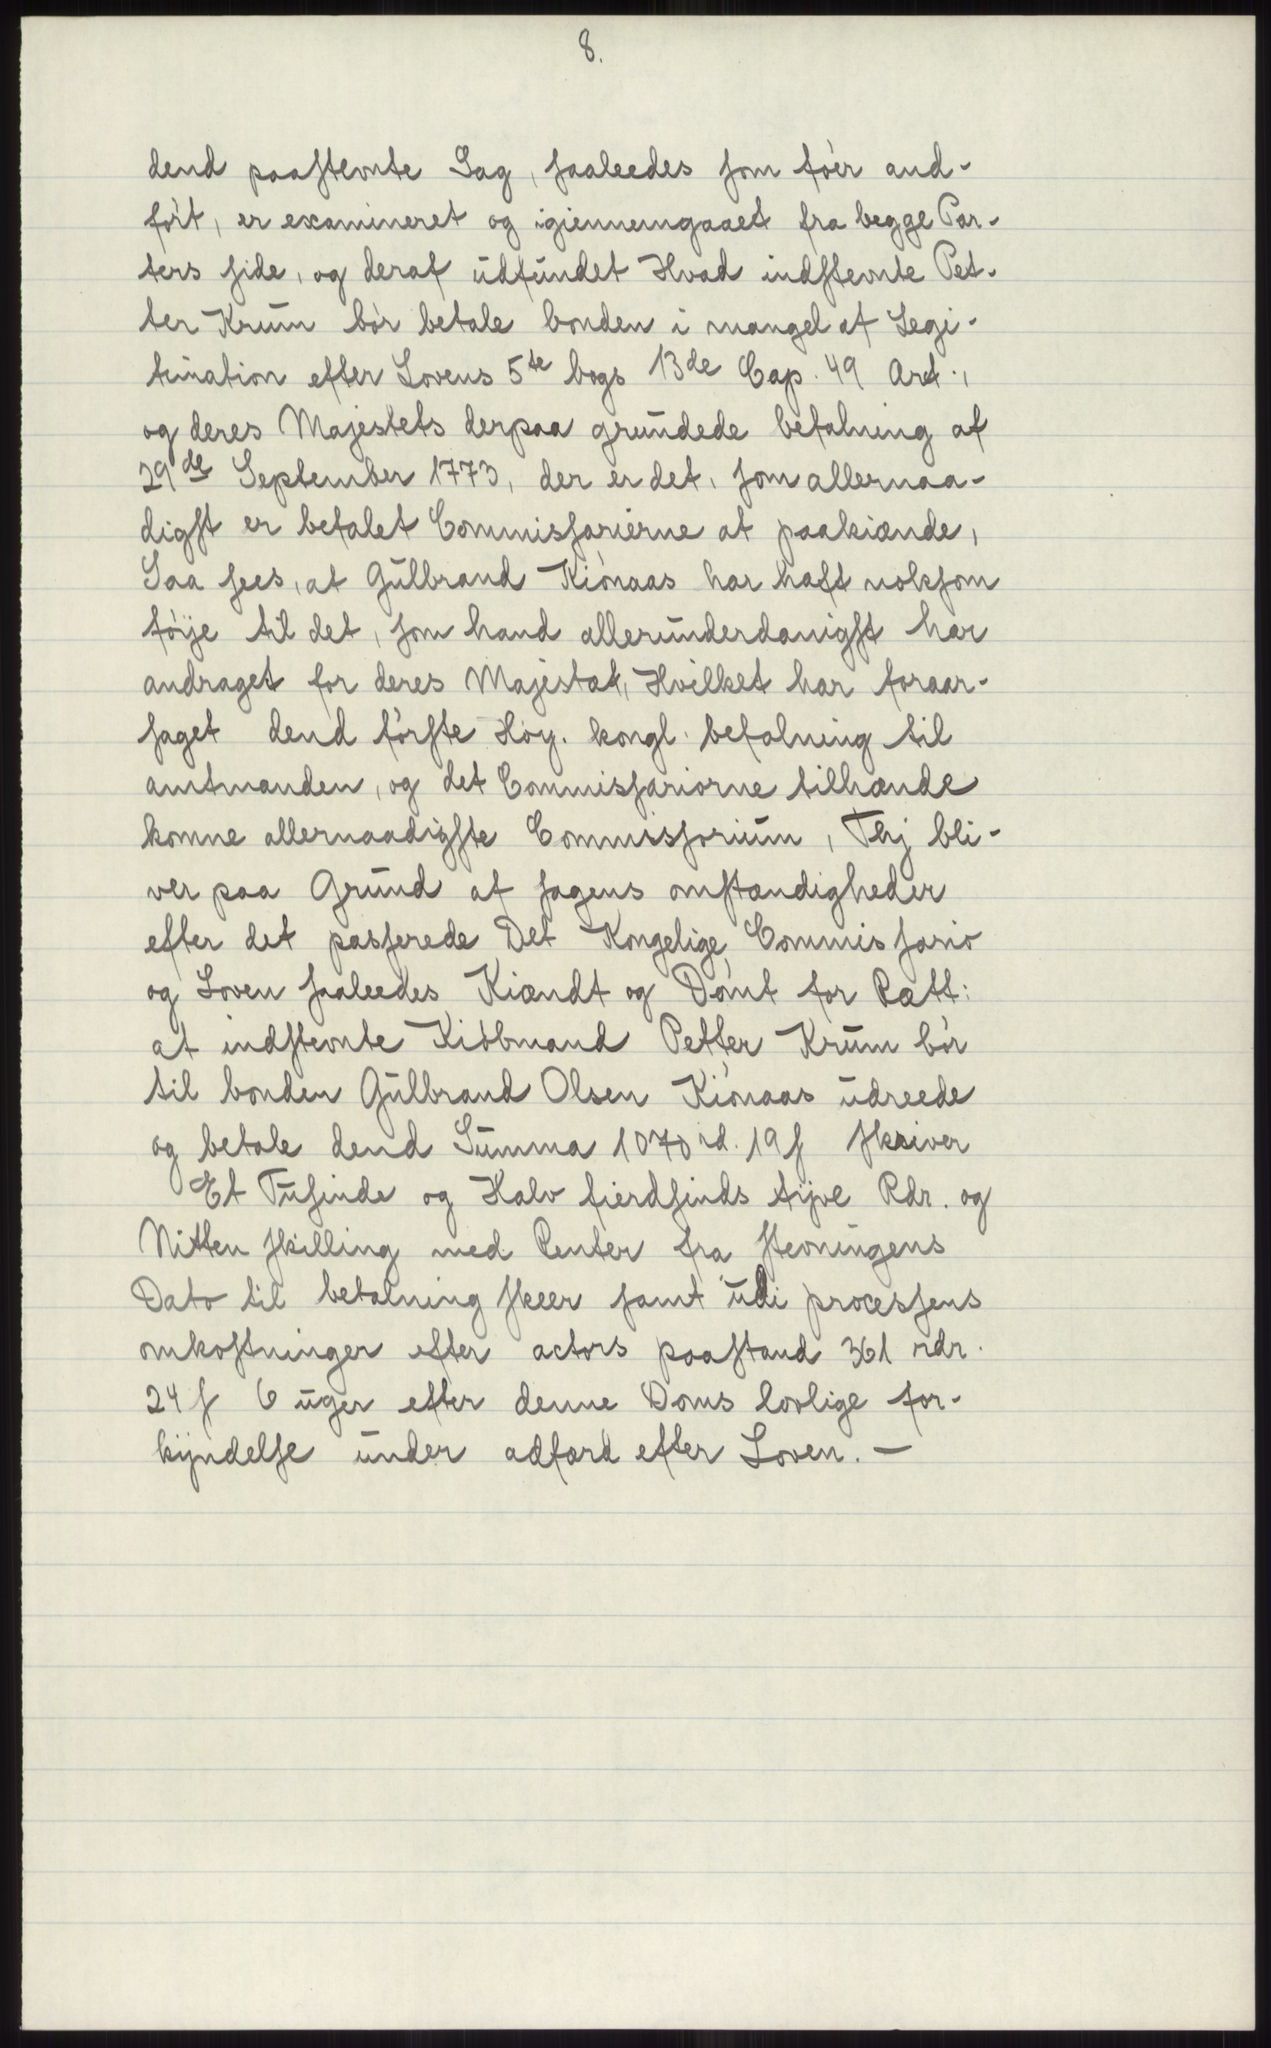 8.
dend paastevnte Sag, saaleedes som føer and-
ført, er examineret og igiennemgaaet fra begge Par-
ters side, og deraf udfundet Hvad indstevnte Pet-
ter Krum bør betale bonden i mangel af Legi-
timation efter Lovens 5te bogs 13de Cap. 49 Art.,
og deres Majestets derpaa grundede befalning af
29de September 1773, der er det, som allernaa-
digst er befalet Commissarierne at paakiænde,
Saa sees, at Gulbrand Kiønaas har haft noksom
føije til det, som hand allerunderdanigst har
andraget for deres Majestæt, Hvilket har foraar-
saget dend første Høy. kongl. befalning til
amtmanden, og det Commissariorne tilhænde
komne allernaadigste Commissorium, Thj bli-
ver paa Grund af sagens omstændigheder
efter det passerede Det Kongelige Commissario
og Loven saaleedes Kiændt og Dømt for Rætt:
at indstevnte Kiøbmand Petter Krum bør
til bonden Gulbrand Olsen Kiønaas udreede
og betale dend Summa 1070 rd. 19 s skriver
Et Tusinde og Halv fierdsinds tijve Rdr. og
Nitten skilling med Renter fra stevningens
Dato til betalning skeer samt udi processens
omkostninger efter actors paastand 361 rdr.
24 s 6 uger efter denne Doms lovlige for-
kyndelse under adfærd efter Loven. —